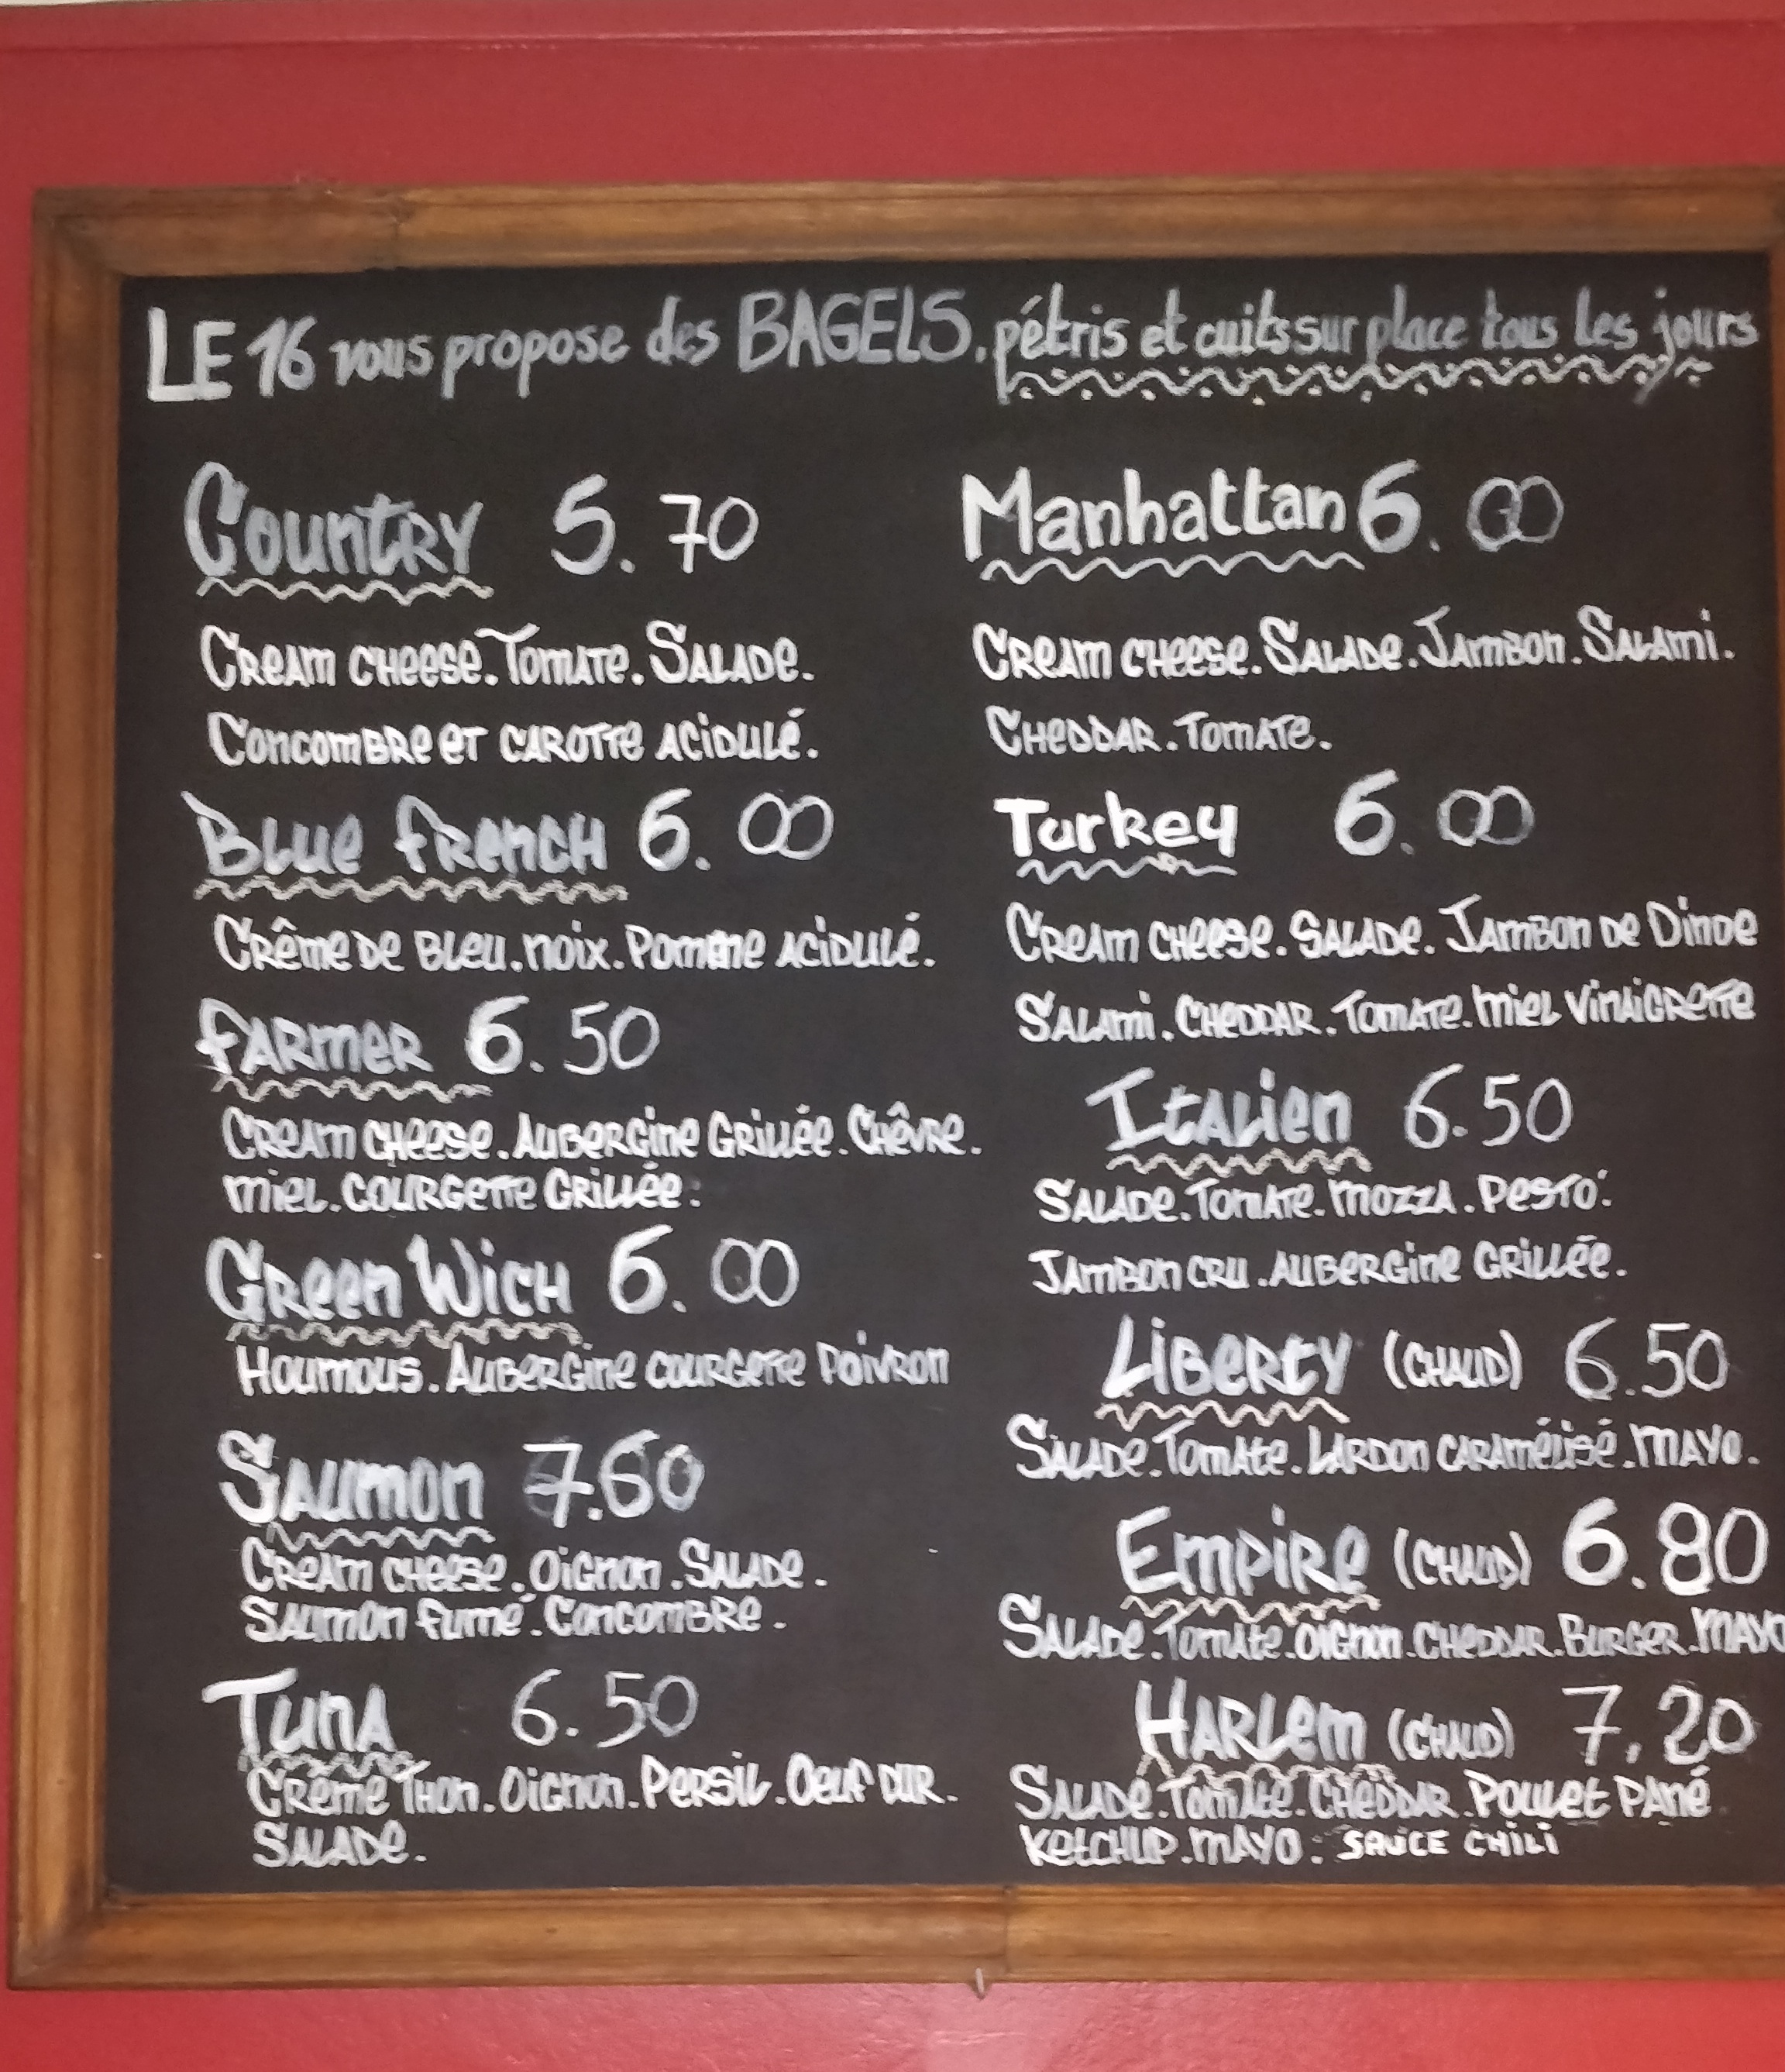 LE 16 vous propose des BAGELS. pétris et cuits sur place tous les jours
Country 5.70
Cream cheese. Tomate. Salade.
Concombre et carotte acidulé.
Blue French 6.00
Crême de bleu. noix. Pomme acidulé.
Farmer 6.50
Cream cheese. Aubergine Grillée. Chêvre.
miel. courgette Grillée.
Green Wich 6.00
Houmous. Aubergine courgette Poivron
Saumon 7.60
Cream cheese. Oignon. Salade.
Saumon fumé. Concombre.
Tuna 6.50
Crème Thon. Oignon. Persil. Oeuf dur.
Salade.
Manhattan 6.00
Cream cheese. Salade. Jambon. Salami.
Cheddar. Tomate.
Turkey 6.00
Cream cheese. Salade. Jambon de Dinde
Salami. Cheddar. Tomate. miel vinaigrette
Italien 6.50
Salade. Tomate. mozza. Pesto.
Jambon cru. Aubergine Grillée.
Liberty (chaud) 6.50
Salade. Tomate. Lardon caramélisé. mayo.
Empire (chaud) 6.80
Salade. Tomate. oignon. cheddar. Burger. mayo
Harlem (chaud) 7.20
Salade. Tomate. Cheddar. Poulet Pané
Ketchup. mayo. sauce chili